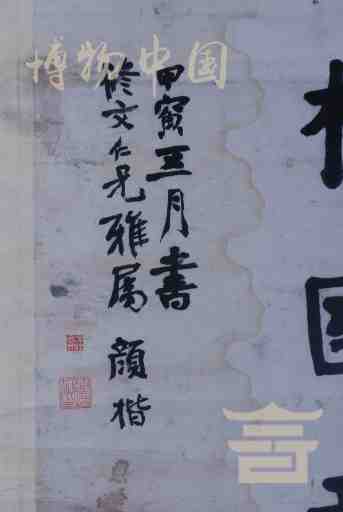 博物中国
甲寅五月書
修文仁兄雅属 顏楷